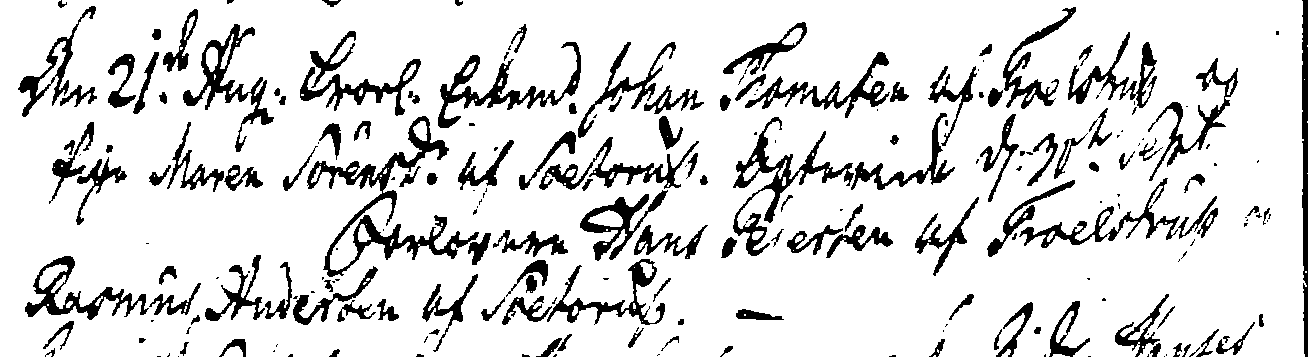 Den 21de Aug: Trol: Enkemd. Johan Thomasen af Troelstrup og
Pige Maren Sörensd: af Soetorup. Egteviede d. 30te Sept.
Forlovere Hans Pedersen af Troelstrup og
Rasmus Andersen af Soetorup. —